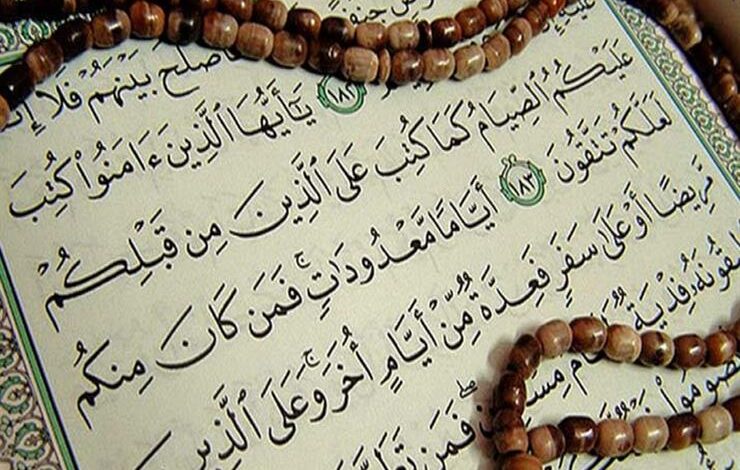 فَأَصْلَحَ بَيْنَهُمْ فَلَآ
١٨٢ يَٰٓأَيُّهَا ٱلَّذِينَ ءَامَنُوا۟ كُتِبَ
عَلَيْكُمُ ٱلصِّيَامُ كَمَا كُتِبَ عَلَى ٱلَّذِينَ مِن قَبْلِكُمْ
لَعَلَّكُمْ تَتَّقُونَ ١٨٣ أَيَّامًا مَّعْدُودَٰتٍ ۚ فَمَن كَانَ مِنكُم
مَّرِيضًا أَوْ عَلَىٰ سَفَرٍ فَعِدَّةٌ مِّنْ أَيَّامٍ أُخَرَ ۚ وَعَلَى ٱلَّذِينَ
فِدْيَةٌ ۖ فَمَن